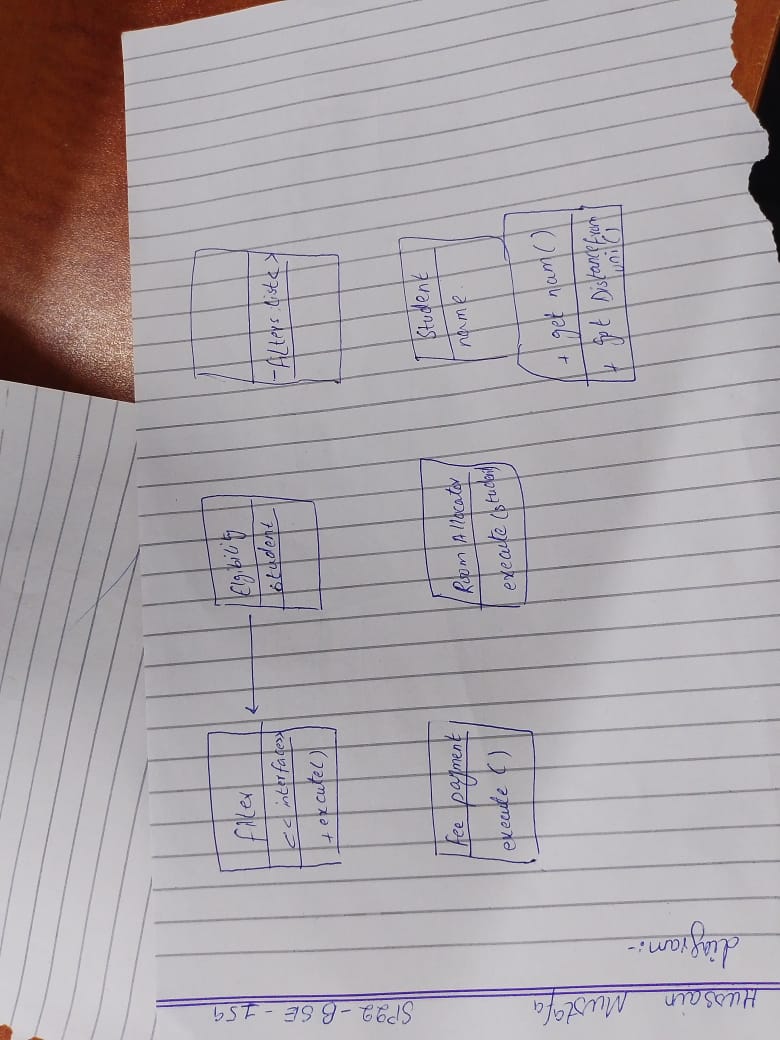 Hussain Mustafa SP22-BSE-159
diagram:-
filter
<< interfaces>>
+ excute()
Elgibility
student
-filters:list< >
fee payment
execute ()
Room Allocator
execute (student)
Student
name
+ get nam()
+ get Distance from
uni()